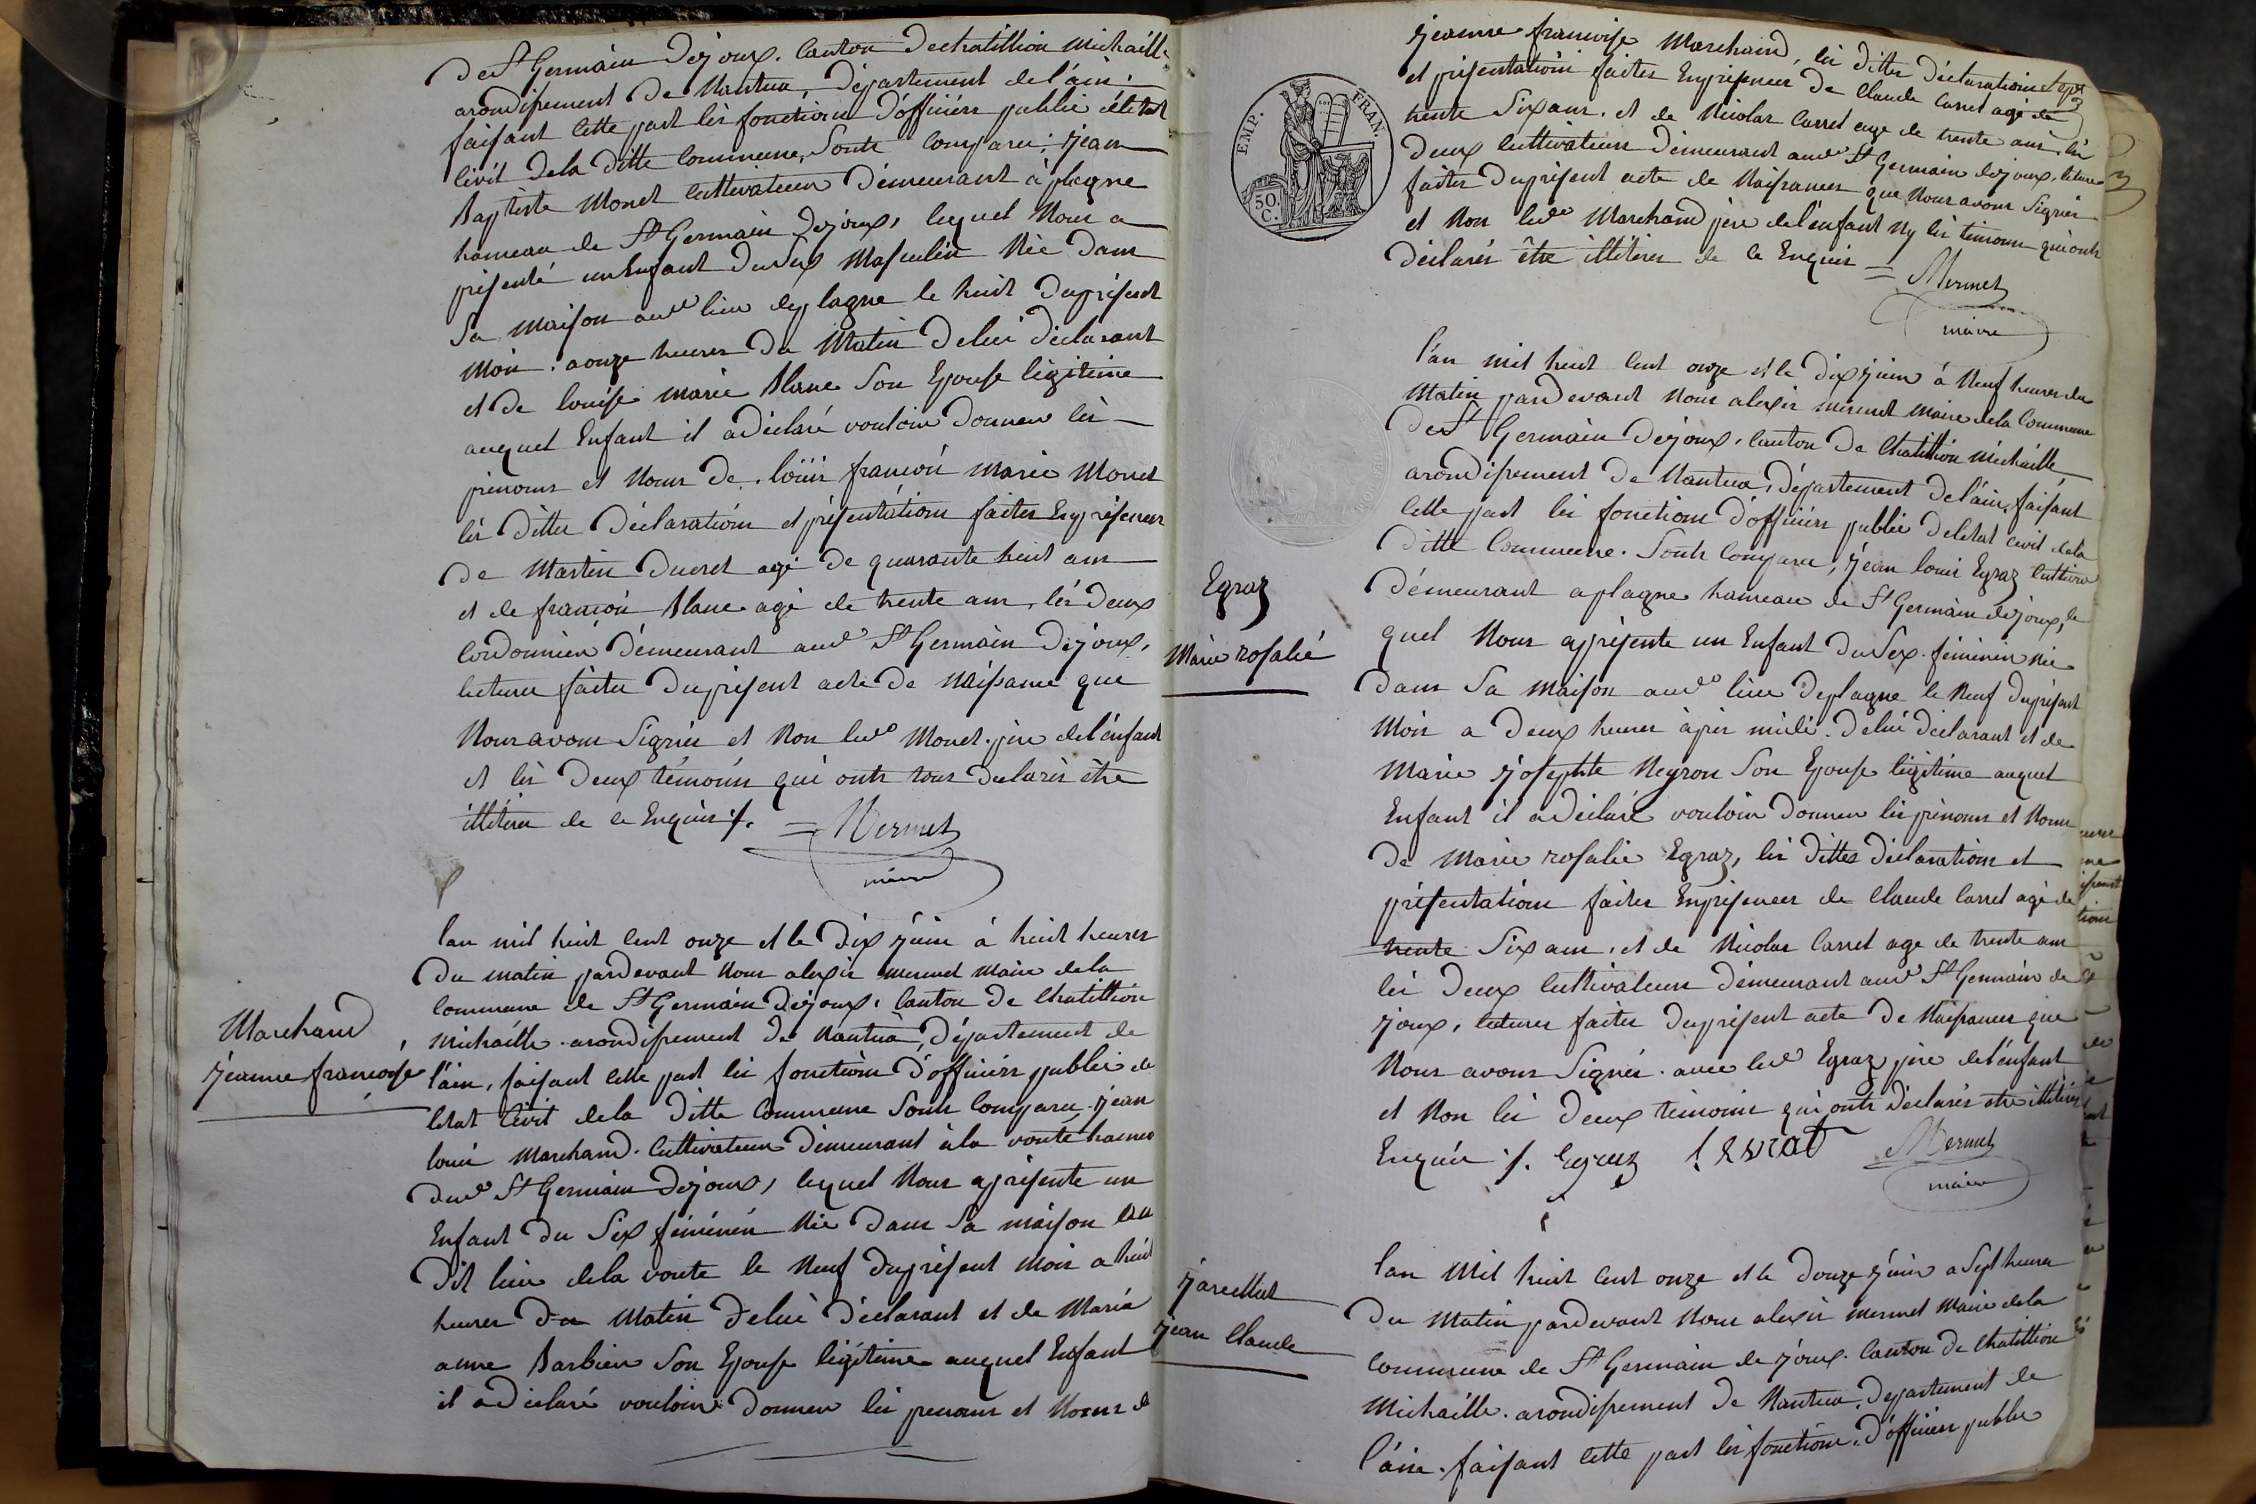 de St Germain dejoux. Canton de chatillion michaille
arondisement de Nantua, département de l'ain.
faisant cette part les fonctions d'officier public de letat
Civil de la ditte Commune, Sonts Comparu; jean
Baptiste Monet Cultivateur démeurant à plagne
hameau de St Germain dejoux, lequel Nous a
présenté un Enfant du sex Masculin Née dans
Sa maison audt lieu de plagne le huit du présent
Mois. a onze heures du Matin de lui déclarant
et de louise marie Blanc Son Epouse légitime
auquel Enfant il a déclaré vouloir donner les
prenoms et Noms de. loüis françois marie Monet
lés dittes déclarations et présentations faites En présence
de Martin ducret agé de quarante huit ans
et de françois Blanc agé de trente ans, lés deux
Cordonnier démeurant audt St Germain dejoux,
lecture faite du présent acte de Naissance que
Nous avons Signés et Non ledt Monet. père de l'énfant
et les deux témoins qui onts tous declarés être
illitéré de ce Enquis ./. Mermet
maire
lan mil huit Cent onze et le dix juin à huit heures
du matin pardevant Nous alexis mermet Maire de la
Commune de St Germain dejoux, Canton de Chatillion
Marchand
jeanne françoise
michaille. arondisement de Nantua, département de
l'ain, faisant cette part les fonctions d'officier public de
letat Civil de la ditte Commune Sonts Comparu jean
loüis Marchand. Cultivateur démeurant à la voute hameau
dudt St Germain dejoux, lequel Nous a présenté un
Enfant du Sex féminin Née dans Sa maison au
dit lieu de la voute le Neuf du présent Mois a huit
heures du Matin de lui déclarant et de Maria
anne Barbier Son Epouse légitime auquel Enfant
il a déclaré vouloir donner les prenoms et Noms de
EMP. FRAN.
50. C.
jeanne françoise Marchand, les dittes déclarations
et présentations faites En présence de Claude Carret agé de
trente Six ans. et de Nicolas Carret age de trente ans, les
deux Cultivateurs démeurant audt St Germain dejoux, lecture
faites du présent acte de Naissances que Nous avons Signés
et Non ledt Marchand père de l'enfant ny les témoins qui onts
déclarés être illitéres de ce Enquis Mermet
maire
l'an mil huit Cent onze et le dix juin à Neuf heures du
Matin pardevant Nous alexis mermet Maire de la Commune
de St Germain dejoux, Canton de Chatillion michaille
arondisement de Nantua, département de l'ain, faisant
cette part les fonctions d'officier public de letat Civil de la
ditte Commune. Sonts Comparu, jean loüis Egraz Cultiva
Egraz
Marie rosalie
démeurant a plagne hameau de St Germain dejoux, le
quel Nous a présente un Enfant du Sex. féminin née
dans Sa Maison audt lieu de plagne le Neuf du présent
Mois a deux heures àprès midi. de lui déclarant et de
Marie josephte Neyron Son Epouse légitime auquel
Enfant il a déclaré vouloir donner les prenoms et Noms
de Marie rosalie Egraz, les dittes déclarations et
présentations faites En présence de Claude Carret agé de
trente Six ans. et de Nicolas Carret age de trente ans
les deux Cultivateurs démeurant audt St Germain de
joux, lectures faites du présent acte de Naissances que
Nous avons Signés. avec ledt Egraz père de l'énfant
et Non les deux témoins qui onts déclarés etre illitéres
Enquis ./. Egraz Mermet
maire
Jean Claude
lan Mil huit Cent onze et le douze juin a Sept heures
du Matin pardevant Nous alexis mermet Maire de la
Commune de St Germain de joux. Canton de Chatillion
Michaille. arondisement de Nantua, département de
l'ain. faisant cette part les fonctions. d'officier public